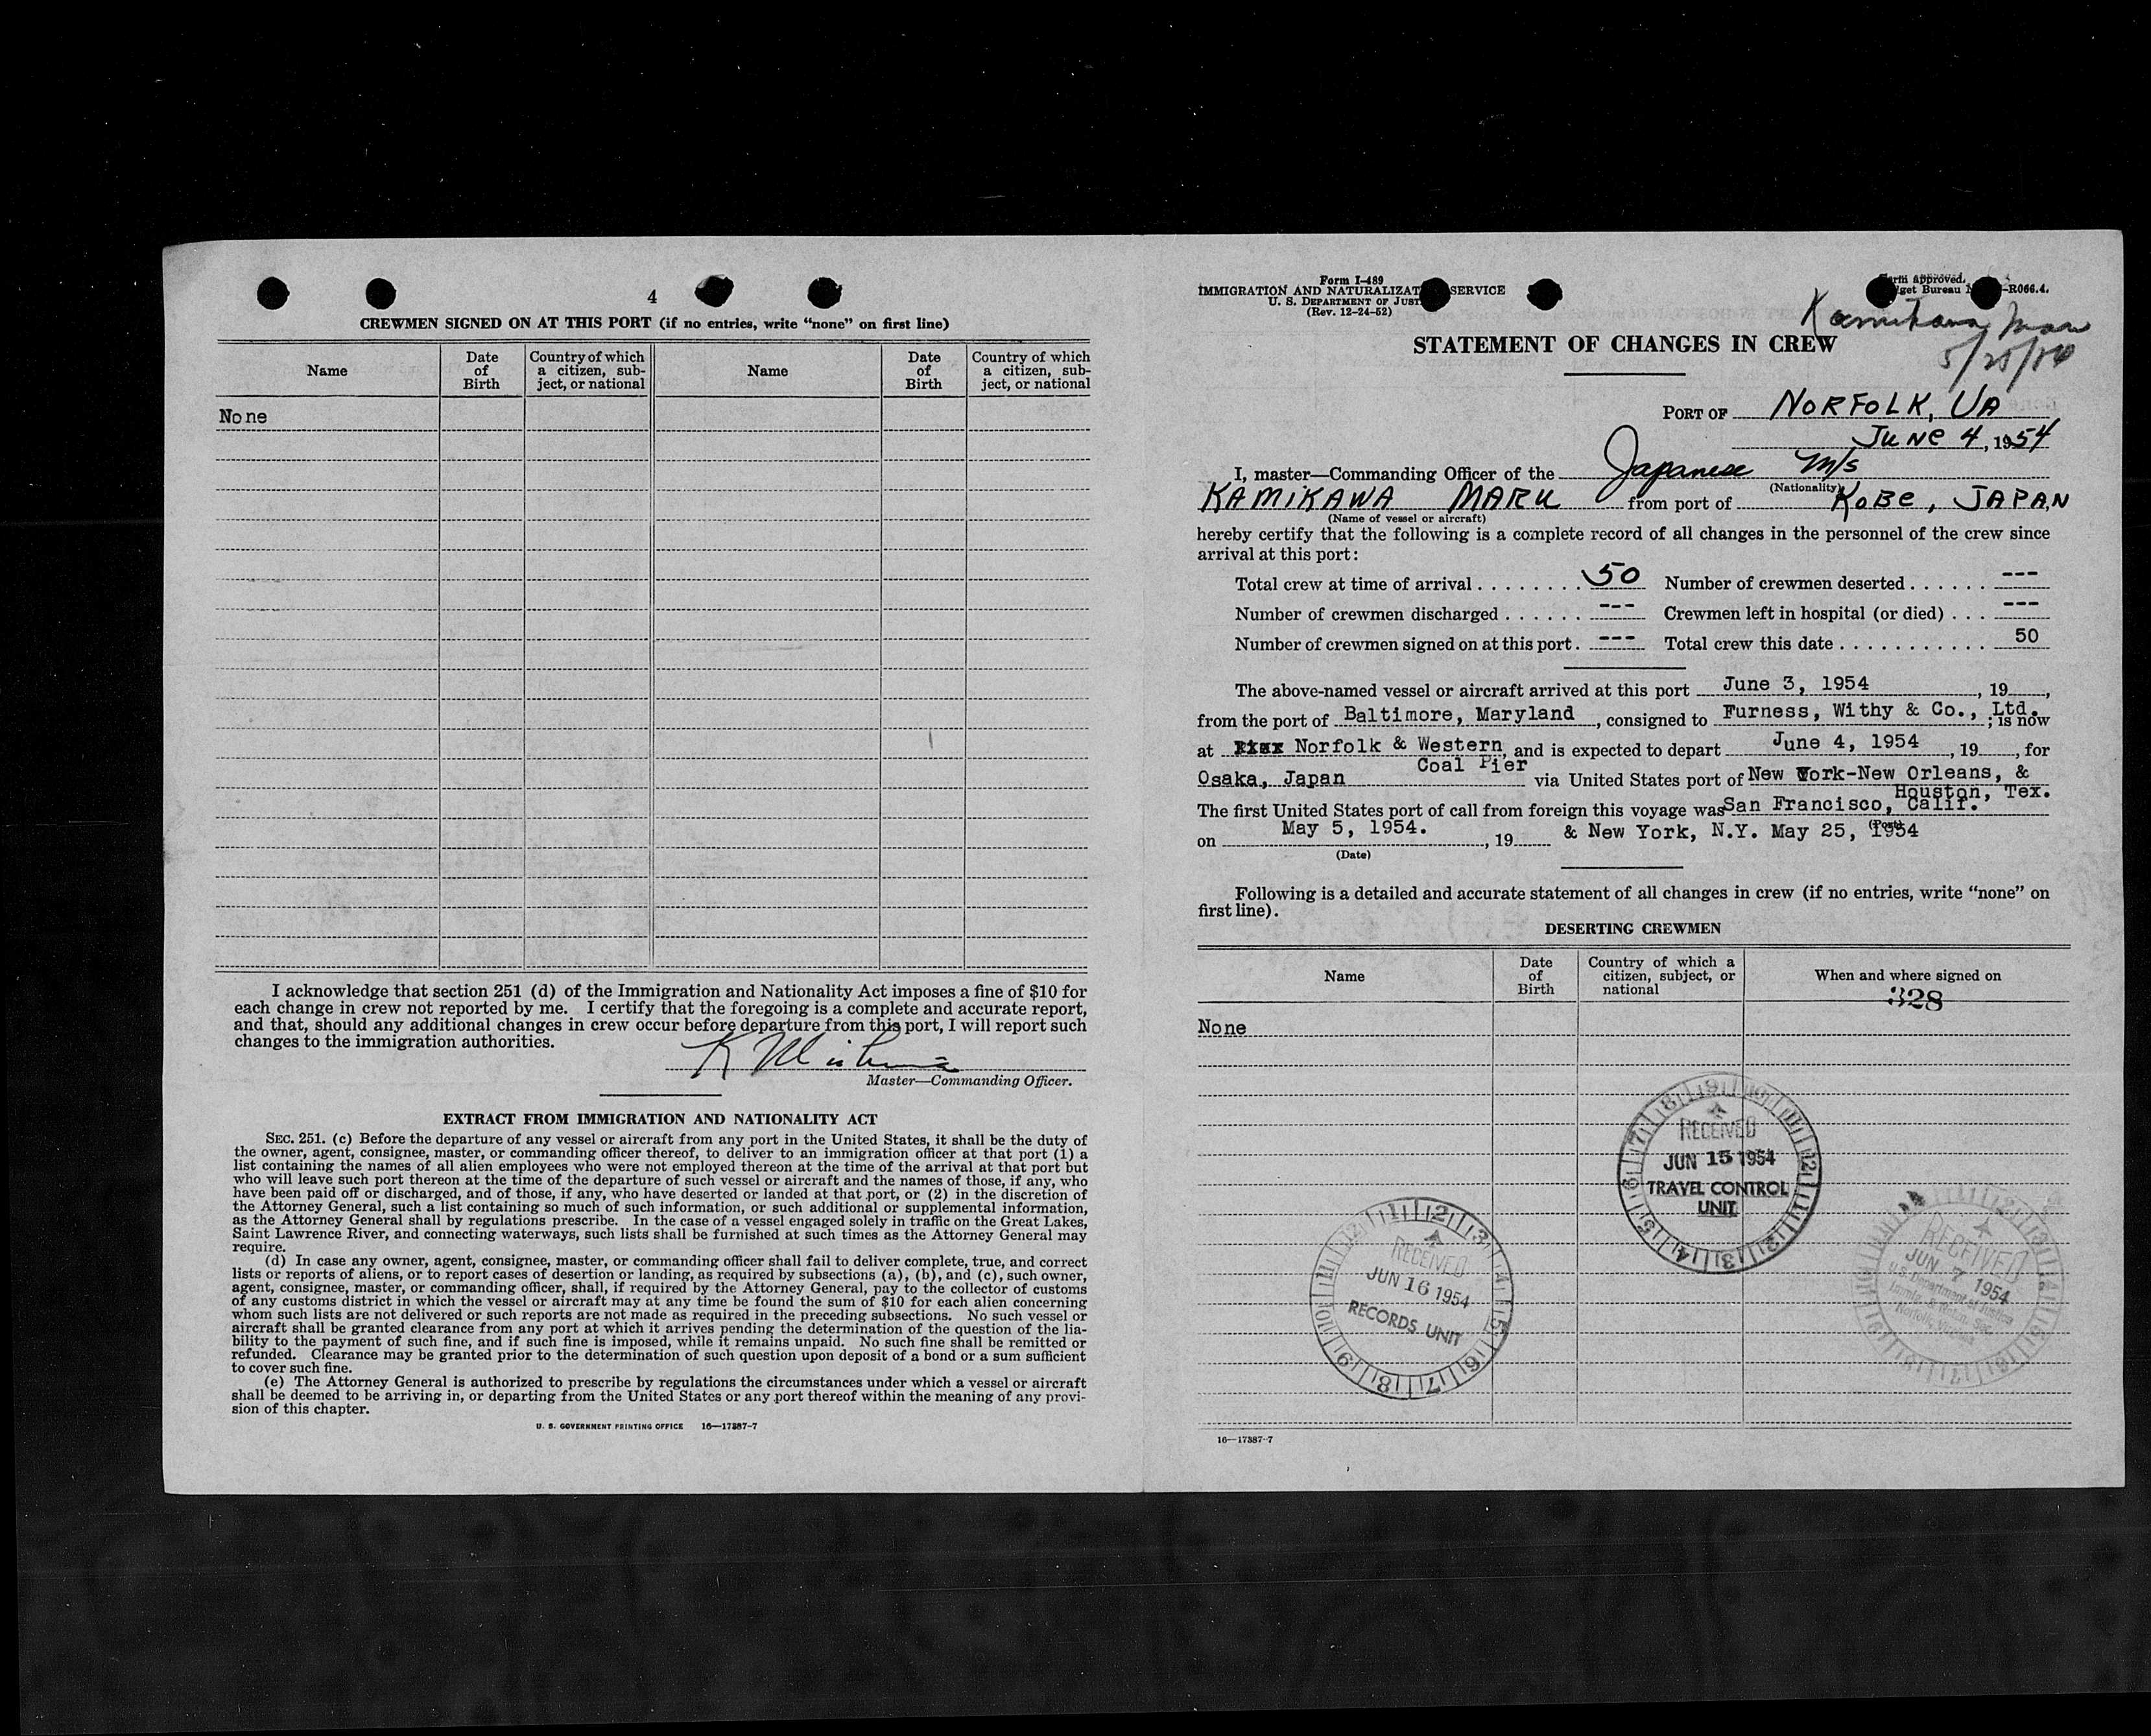 4
CREWMEN SIGNED ON AT THIS PORT (if no entries, write “none” on first line)
Name
Date of Birth
Country of which a citizen, subject, or national
Name
Date of Birth
Country of which a citizen, subject, or national
None
I acknowledge that section 251 (d) of the Immigration and Nationality Act imposes a fine of $10 for
each change in crew not reported by me. I certify that the foregoing is a complete and accurate report,
and that, should any additional changes in crew occur before departure from this port, I will report such
changes to the immigration authorities.
Master—Commanding Officer.
EXTRACT FROM IMMIGRATION AND NATIONALITY ACT
SEC. 251. (c) Before the departure of any vessel or aircraft from any port in the United States, it shall be the duty of
the owner, agent, consignee, master, or commanding officer thereof, to deliver to an immigration officer at that port (1) a
list containing the names of all alien employees who were not employed thereon at the time of the arrival at that port but
who will leave such port thereon at the time of the departure of such vessel or aircraft and the names of those, if any, who
have been paid off or discharged, and of those, if any, who have deserted or landed at that port, or (2) in the discretion of
the Attorney General, such a list containing so much of such information, or such additional or supplemental information,
as the Attorney General shall by regulations prescribe. In the case of a vessel engaged solely in traffic on the Great Lakes,
Saint Lawrence River, and connecting waterways, such lists shall be furnished at such times as the Attorney General may
require.
(d) In case any owner, agent, consignee, master, or commanding officer shall fail to deliver complete, true, and correct
lists or reports of aliens, or to report cases of desertion or landing, as required by subsections (a), (b), and (c), such owner,
agent, consignee, master, or commanding officer, shall, if required by the Attorney General, pay to the collector of customs
of any customs district in which the vessel or aircraft may at any time be found the sum of $10 for each alien concerning
whom such lists are not delivered or such reports are not made as required in the preceding subsections. No such vessel or
aircraft shall be granted clearance from any port at which it arrives pending the determination of the question of the lia-
bility to the payment of such fine, and if such fine is imposed, while it remains unpaid. No such fine shall be remitted or
refunded. Clearance may be granted prior to the determination of such question upon deposit of a bond or a sum sufficient
to cover such fine.
(e) The Attorney General is authorized to prescribe by regulations the circumstances under which a vessel or aircraft
shall be deemed to be arriving in, or departing from the United States or any port thereof within the meaning of any provi-
sion of this chapter.
U. S. GOVERNMENT PRINTING OFFICE 16—17387-7
Form I-489
IMMIGRATION AND NATURALIZAT SERVICE
U. S. DEPARTMENT OF JUST
(Rev. 12-24-52)
Approved.
get Bureau -R066.4.
Kamikawa Maru
5/25/54
STATEMENT OF CHANGES IN CREW
PORT OF NORFOLK, VA
JUNE 4, 1954
I, master—Commanding Officer of the Japanese M/S
(Nationality)
KAMIKAWA MARU from port of KOBE, JAPAN,
(Name of vessel or aircraft)
hereby certify that the following is a complete record of all changes in the personnel of the crew since
arrival at this port:
Total crew at time of arrival . . . . . . . . 50 Number of crewmen deserted . . . . . . ---
Number of crewmen discharged . . . . . . --- Crewmen left in hospital (or died) . . . ---
Number of crewmen signed on at this port . --- Total crew this date . . . . . . . . . . . 50
The above-named vessel or aircraft arrived at this port June 3, 1954, 19 ,
from the port of Baltimore, Maryland, consigned to Furness, Withy & Co., Ltd. ; is now
at Norfolk & Western, and is expected to depart June 4, 1954, 19 , for
Coal Pier
Osaka, Japan via United States port of New York-New Orleans, &
Houston, Tex.
The first United States port of call from foreign this voyage was San Francisco, Calif.
(Port)
on May 5, 1954. , 19 & New York, N.Y. May 25, 1954
(Date)
Following is a detailed and accurate statement of all changes in crew (if no entries, write “none” on
first line).
DESERTING CREWMEN
Name
Date of Birth
Country of which a citizen, subject, or national
When and where signed on
328
None
RECEIVED
JUN 15 1954
TRAVEL CONTROL
UNIT
RECEIVED
JUN 16 1954
RECORDS UNIT
RECEIVED
JUN 7 1954
U.S. Department of Justice
16—17387-7